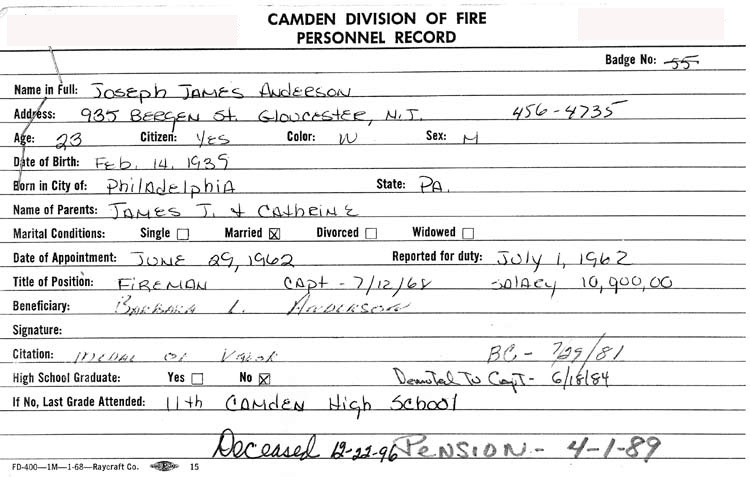 CAMDEN DIVISION OF FIRE
PERSONNEL RECORD
Badge No: 55
Name in Full: Joseph James Anderson
Address: 935 Bergen St. Gloucester, N.J. 456-4735
Age: 23 Citizen: Yes Color: W Sex: M
Date of Birth: Feb. 14, 1939
Born in City of: Philadelphia State: PA.
Name of Parents: James J. & Catheine
Marital Conditions: Single ☐ Married ☒ Divorced ☐ Widowed ☐
Date of Appointment: June 29, 1962 Reported for duty: July 1, 1962
Title of Position: Fireman Capt - 7/12/68 Salary 10,900.00
Beneficiary: Barbara L. Anderson
Signature:
Citation: Medal of Valor BC - 7/29/81
High School Graduate: Yes ☐ No ☒ Demoted To Capt - 6/18/84
If No, Last Grade Attended: 11th Camden High School
Deceased 12-22-96 Pension - 4-1-89
FD-400—1M—1-68—Raycraft Co. 15